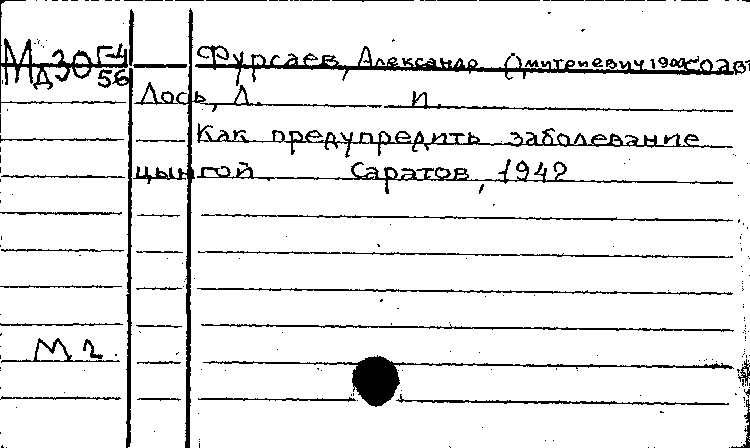 Мд30 Г-4
56
Фурсаев, Александр Дмитриевич 1900- соавт
Лось, Л. И.
Как предупредить заболевание
цынгой. Саратов, 1942
М 2.